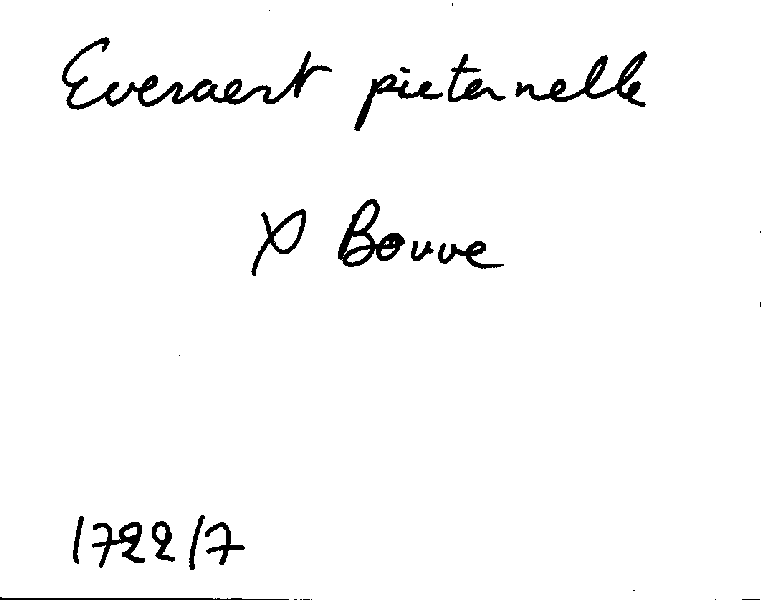 Everaert pieternelle
X Bouve
1722/7